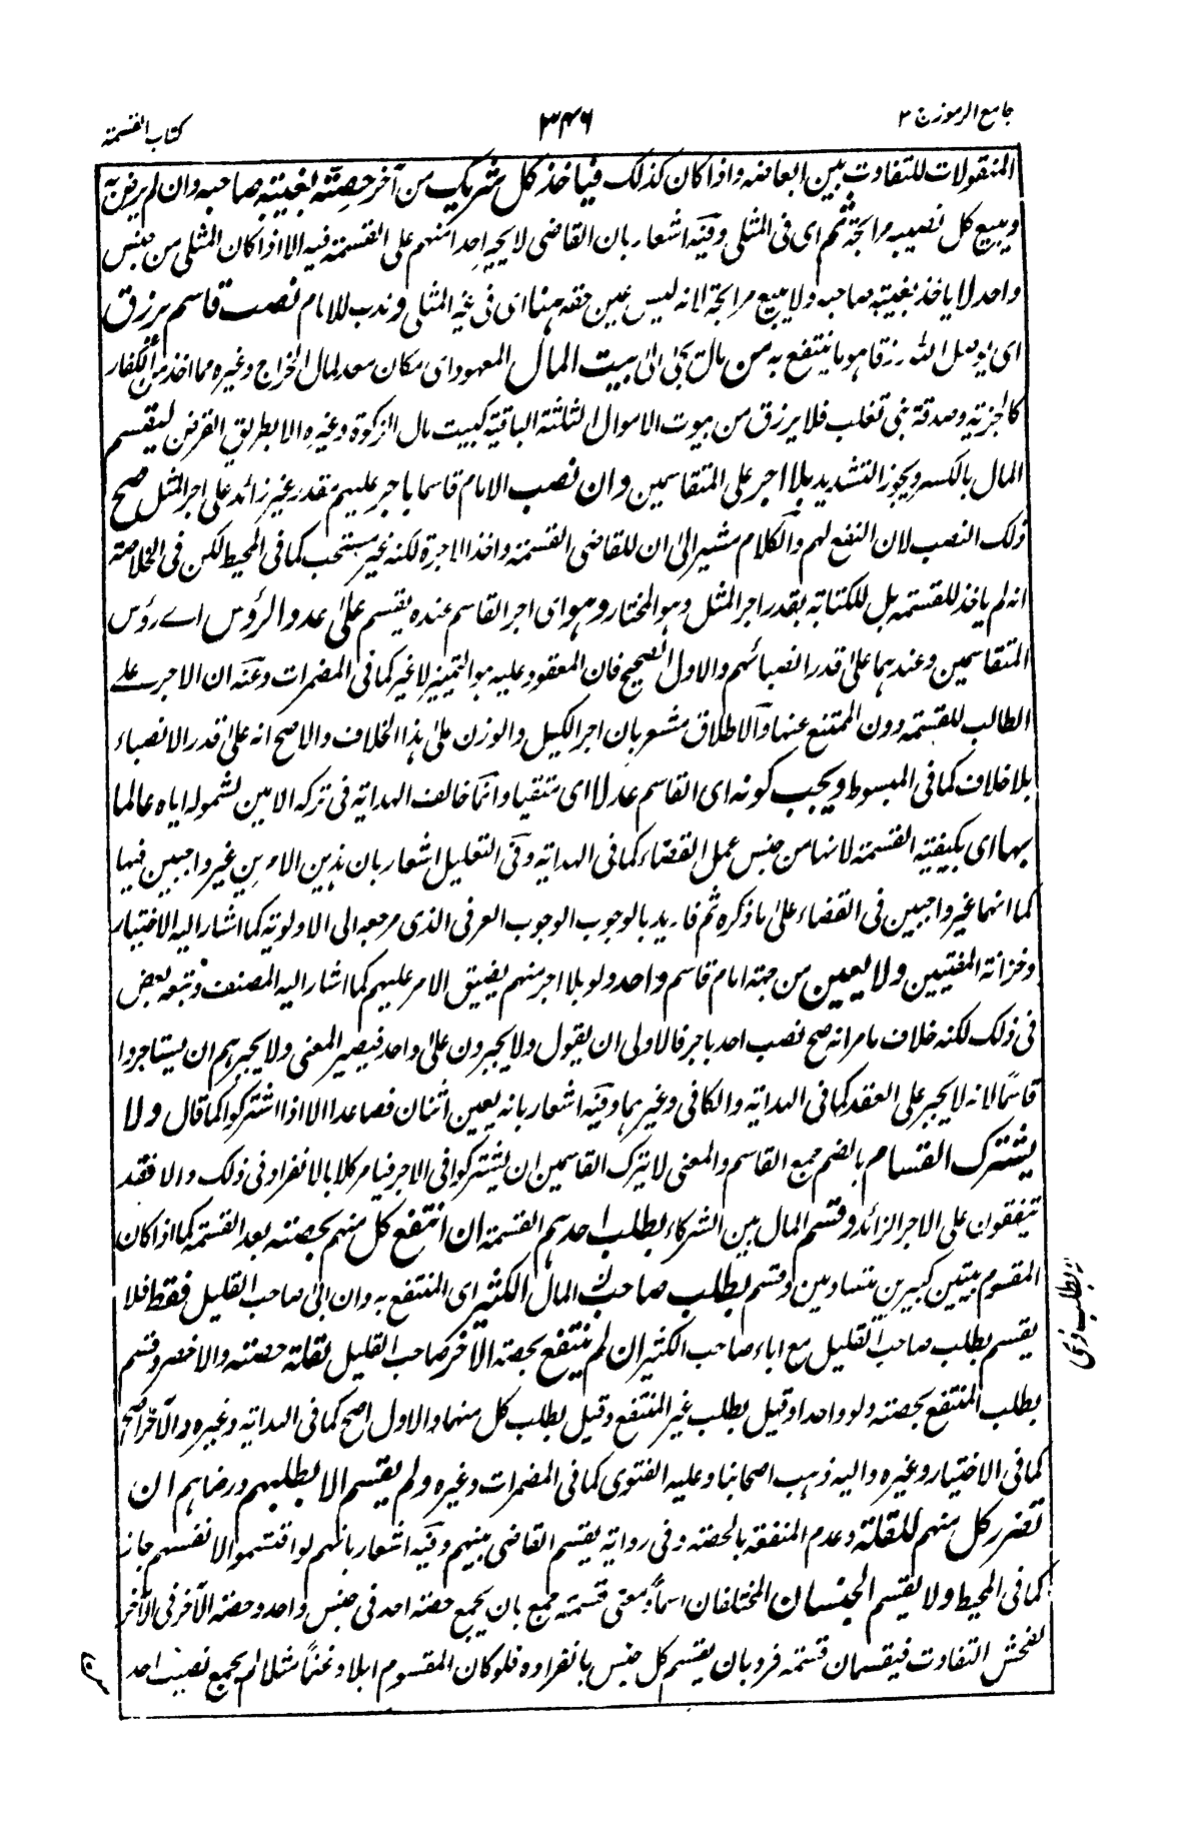 جامع الرموز ج ٣
٣٤٦
كتاب القسمة
المنقولات للتفاوت بين ابعاضه واذا كان كذلك فياخذ كل شريك من آخر حصته بغيبته صاحبه وان لم يرض به
ويبيع كل نصيبه مرابحة ثم اى فى المثلى وفيه اشعار بان القاضى لا يجبر احدا منهم على القسمة فيه الا اذا كان المثلى من جنس
واحد لا ياخذ بغيبته صاحبه ولا يبيع مرابحة لانه ليس عين حقه هنا اى فى غير المثلى وندب للامام نصب قاسم يرزق
اى يوصل الله رزقا هو ما ينتفع به من مال يجى الى بيت المال المعهود اى مكان معد لمال الخراج وغيره مما اخذ من الكفار
كالجزية وصدقة بنى تغلب فلا يرزق من بيوت الاموال الثلثة الباقية كبيت مال الزكوة وغيره الا بطريق القرض ليقسم
المال بالكسر ويجوز التشديد بلا اجر على المتقاسمين وان نصب الامام قاسما باجر عليهم مقدر غير زائد على اجر المثل صح
ذلك النصب لان النفع لهم والكلام مشير الى ان للقاضى القسمة واخذ الاجرة لكنه غير مستحب كما فى المحيط لكن فى الخلاصة
انه لم ياخذ للقسمة بل للكتابة بقدر اجر المثل وهو المختار وهو اى اجر القاسم عنده يقسم على عدد الرؤس اے رؤس
المتقاسمين وعندهما على قدر انصبائهم والاول الصحيح فان المعقود عليه هو التميز لا غير كما فى المضمرات وعنه ان الاجر على
الطالب للقسمة دون الممتنع عنها والاطلاق مشعر بان اجر الكيل والوزن على هذا الخلاف والاصح انه على قدر الانصباء
بلا خلاف كما فى المبسوط ويجب كونه اى القاسم عدلا اى متقيا وانما خالف الهداية فى تركه الامين لشموله اياه عالما
بها اى بكيفية القسمة لانها من جنس عمل القضاء كما فى الهداية وفى التعليل اشعار بان هذين الامرين غير واجبين فيها
كما انهما غير واجبين فى القضاء على ما ذكره ثم فاريد بالوجوب الوجوب العرفى الذى مرجعه الى الاولوية كما اشار اليه الاختيار
وخزانة المفتيين ولا يعين من جهة امام قاسم واحد ولو بلا اجر منهم يضيق الامر عليهم كما اشار اليه المصنف وتبعه بعض
فى ذلك لكنه خلاف ما مر انه صح نصب احد باجر فالاولى ان يقول ولا يجبرون على واحد فيصير المعنى ولا يجبرهم ان يستاجروا
قاسما لانه لا يجبر على العقد كما فى الهداية والكافى وغيرهما وفيه اشعار بانه يعين اثنان فصاعدا الا اذا اشتركوا كما قال ولا
يشترك القسام بالضم جمع القاسم والمعنى لا يترك القاسمين ان يشتركوا فى الاجر فيامر كلا بالانفراد فى ذلك والا فقد
يتفقون على الاجر الزائد وقسم المال بين الشركاء بطلب احدهم القسمة ان انتفع كل منهم بحصته بعد القسمة كما اذا كان
المقسوم بيتين كبيرين متساويين وقسم بطلب صاحب المال الكثير اى المنتفع به وان ابى صاحب القليل فقط فلا
يقسم بطلب صاحب القليل مع اباء صاحب الكثير ان لم ينتفع بحصته الآخر صاحب القليل لقلة حصته والاخصر وقسم
بطلب المنتفع بحصته ولو واحدا وقيل بطلب غير المنتفع وقيل بطلب كل منهما والاول اصح كما فى الهداية وغيره والآخر اصح
كما فى الاختيار وغيره واليه ذهب اصحابنا وعليه الفتوى كما فى المضمرات وغيره ولم يقسم الا بطلبهم ورضاهم ان
تضرر كل منهم للقلة وعدم المنفعة بالحصة وفى رواية يقسم القاضى بينهم وفيه اشعار بانهم لو اقتسموا لانفسهم جاز
كما فى المحيط ولا يقسم الجنسان المختلفان اسما ومعنى قسمة جمع بان يجمع حصة احد فى جنس واحد وحصة الآخر فى الآخر
لفحش التفاوت فيقسمان قسمة فرد بان يقسم كل جنس بانفراده فلو كان المقسوم ابلا وغنما مثلا لم يجمع نصيب احد